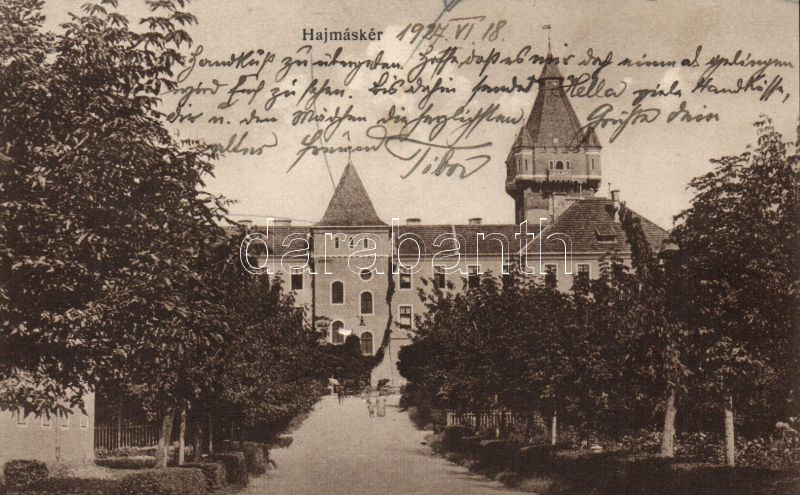 Hajmáskér 1927 VI 18.
Handkuß zu übergeben. Hoffe, daß es mir doch einmal gelingen
wird Euch zu sehen. Bis dahin sendet Hella viele Handküsse,
dir u. den Mädchen die herzlichsten Grüße dein
alter Freund Tibor
darabanth